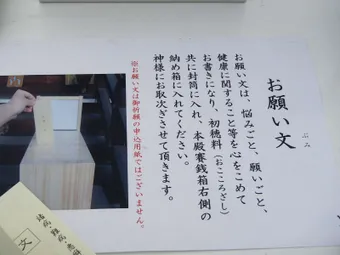 お願い文
ぶみ
お願い文は、悩みごと、願いごと、
健康に関すること等を心をこめて
お書きになり、初穂料(おこころざし)
共に封筒に入れ、本殿賽銭箱右側の
納め箱に入れてください。
神様にお取次ぎさせて頂きます。
※お願い文は御祈願の申込用紙ではございません。
文